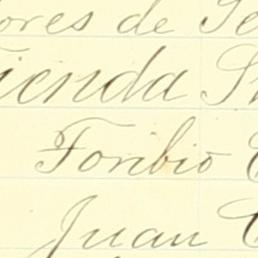 ores de Te
ienda S
Toribio C
Juan C